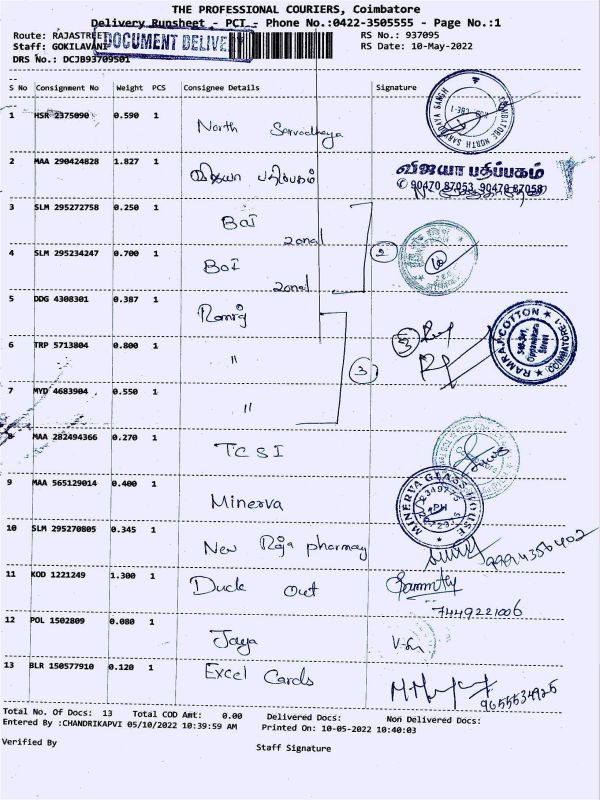 THE PROFESSIONAL COURIERS, Coimbatore
Delivery Runsheet - PCT - Phone No.:0422-3505555 - Page No.:1
Route: RAJASTREET RS No.: 937095
Staff: GOKILAVANI DOCUMENT DELIVE RS Date: 10-May-2022
DRS No.: DCJB93709501
S No Consignment No Weight PCS Consignee Details Signature
1 HSR 2375090 0.590 1 North Sarvodhaya
2 MAA 290424828 1.827 1 விஜயா பதிப்பகம் விஜயா பதிப்பகம்
✆ 90470 87053, 90470 87058
3 SLM 295272758 0.250 1 BOI
zonal
4 SLM 295234247 0.700 1 BOI
zonal 2
5 DDG 4308301 0.387 1 Ramraj
6 TRP 5713804 0.800 1 "
3
RAMRAJ COTTON COIMBATORE-1
7 MYD 4683904 0.550 1 "
8 MAA 282494366 0.270 1 TCSI
9 MAA 565129014 0.400 1 Minerva
MINERVA GLASS HOUSE
10 SLM 295270805 0.345 1 New Raja pharmacy
9994356402
11 KOD 1221249 1.300 1 Duck Out
7449221006
12 POL 1502809 0.080 1 Jaya
13 BLR 150577910 0.120 1 Excel Cards
9655534925
Total No. Of Docs: 13 Total COD Amt: 0.00 Delivered Docs: Non Delivered Docs:
Entered By :CHANDRIKAPVI 05/10/2022 10:39:59 AM Printed On: 10-05-2022 10:40:03
Verified By Staff Signature